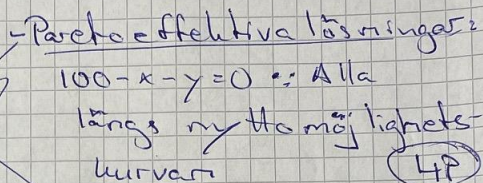 - Paretoeffektiva lösningar:
100-x-y=0 ∴ Alla
längs nyttomöjlighets-
kurvan
4P